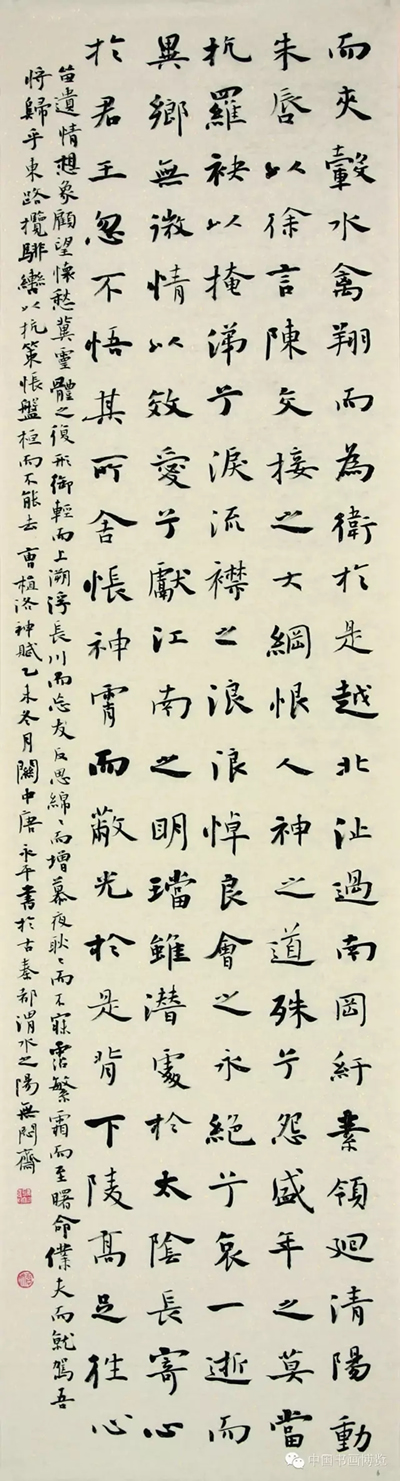 而夾轂水禽翔而為衛於是越北沚過南岡紆素領迴清陽動
朱唇以徐言陳交接之大綱恨人神之道殊兮怨盛年之莫當
抗羅袂以掩涕兮淚流襟之浪浪悼良會之永絕兮哀一逝而
異鄉無微情以效愛兮獻江南之明璫雖潛處於太陰長寄心
於君王忽不悟其所舍悵神霄而蔽光於是背下陵高足往心
留遺情想象顧望懷愁冀靈體之復形御輕而上溯浮長川而忘反思綿〻而增慕夜耿〻而不寐霑繁霜而至曙命僕夫而就駕吾
將歸乎東路攬騑轡以抗策悵盤桓而不能去 曹植洛神賦乙未冬月關中唐永平書於古秦都渭水之陽無悶齋
中国书画博览